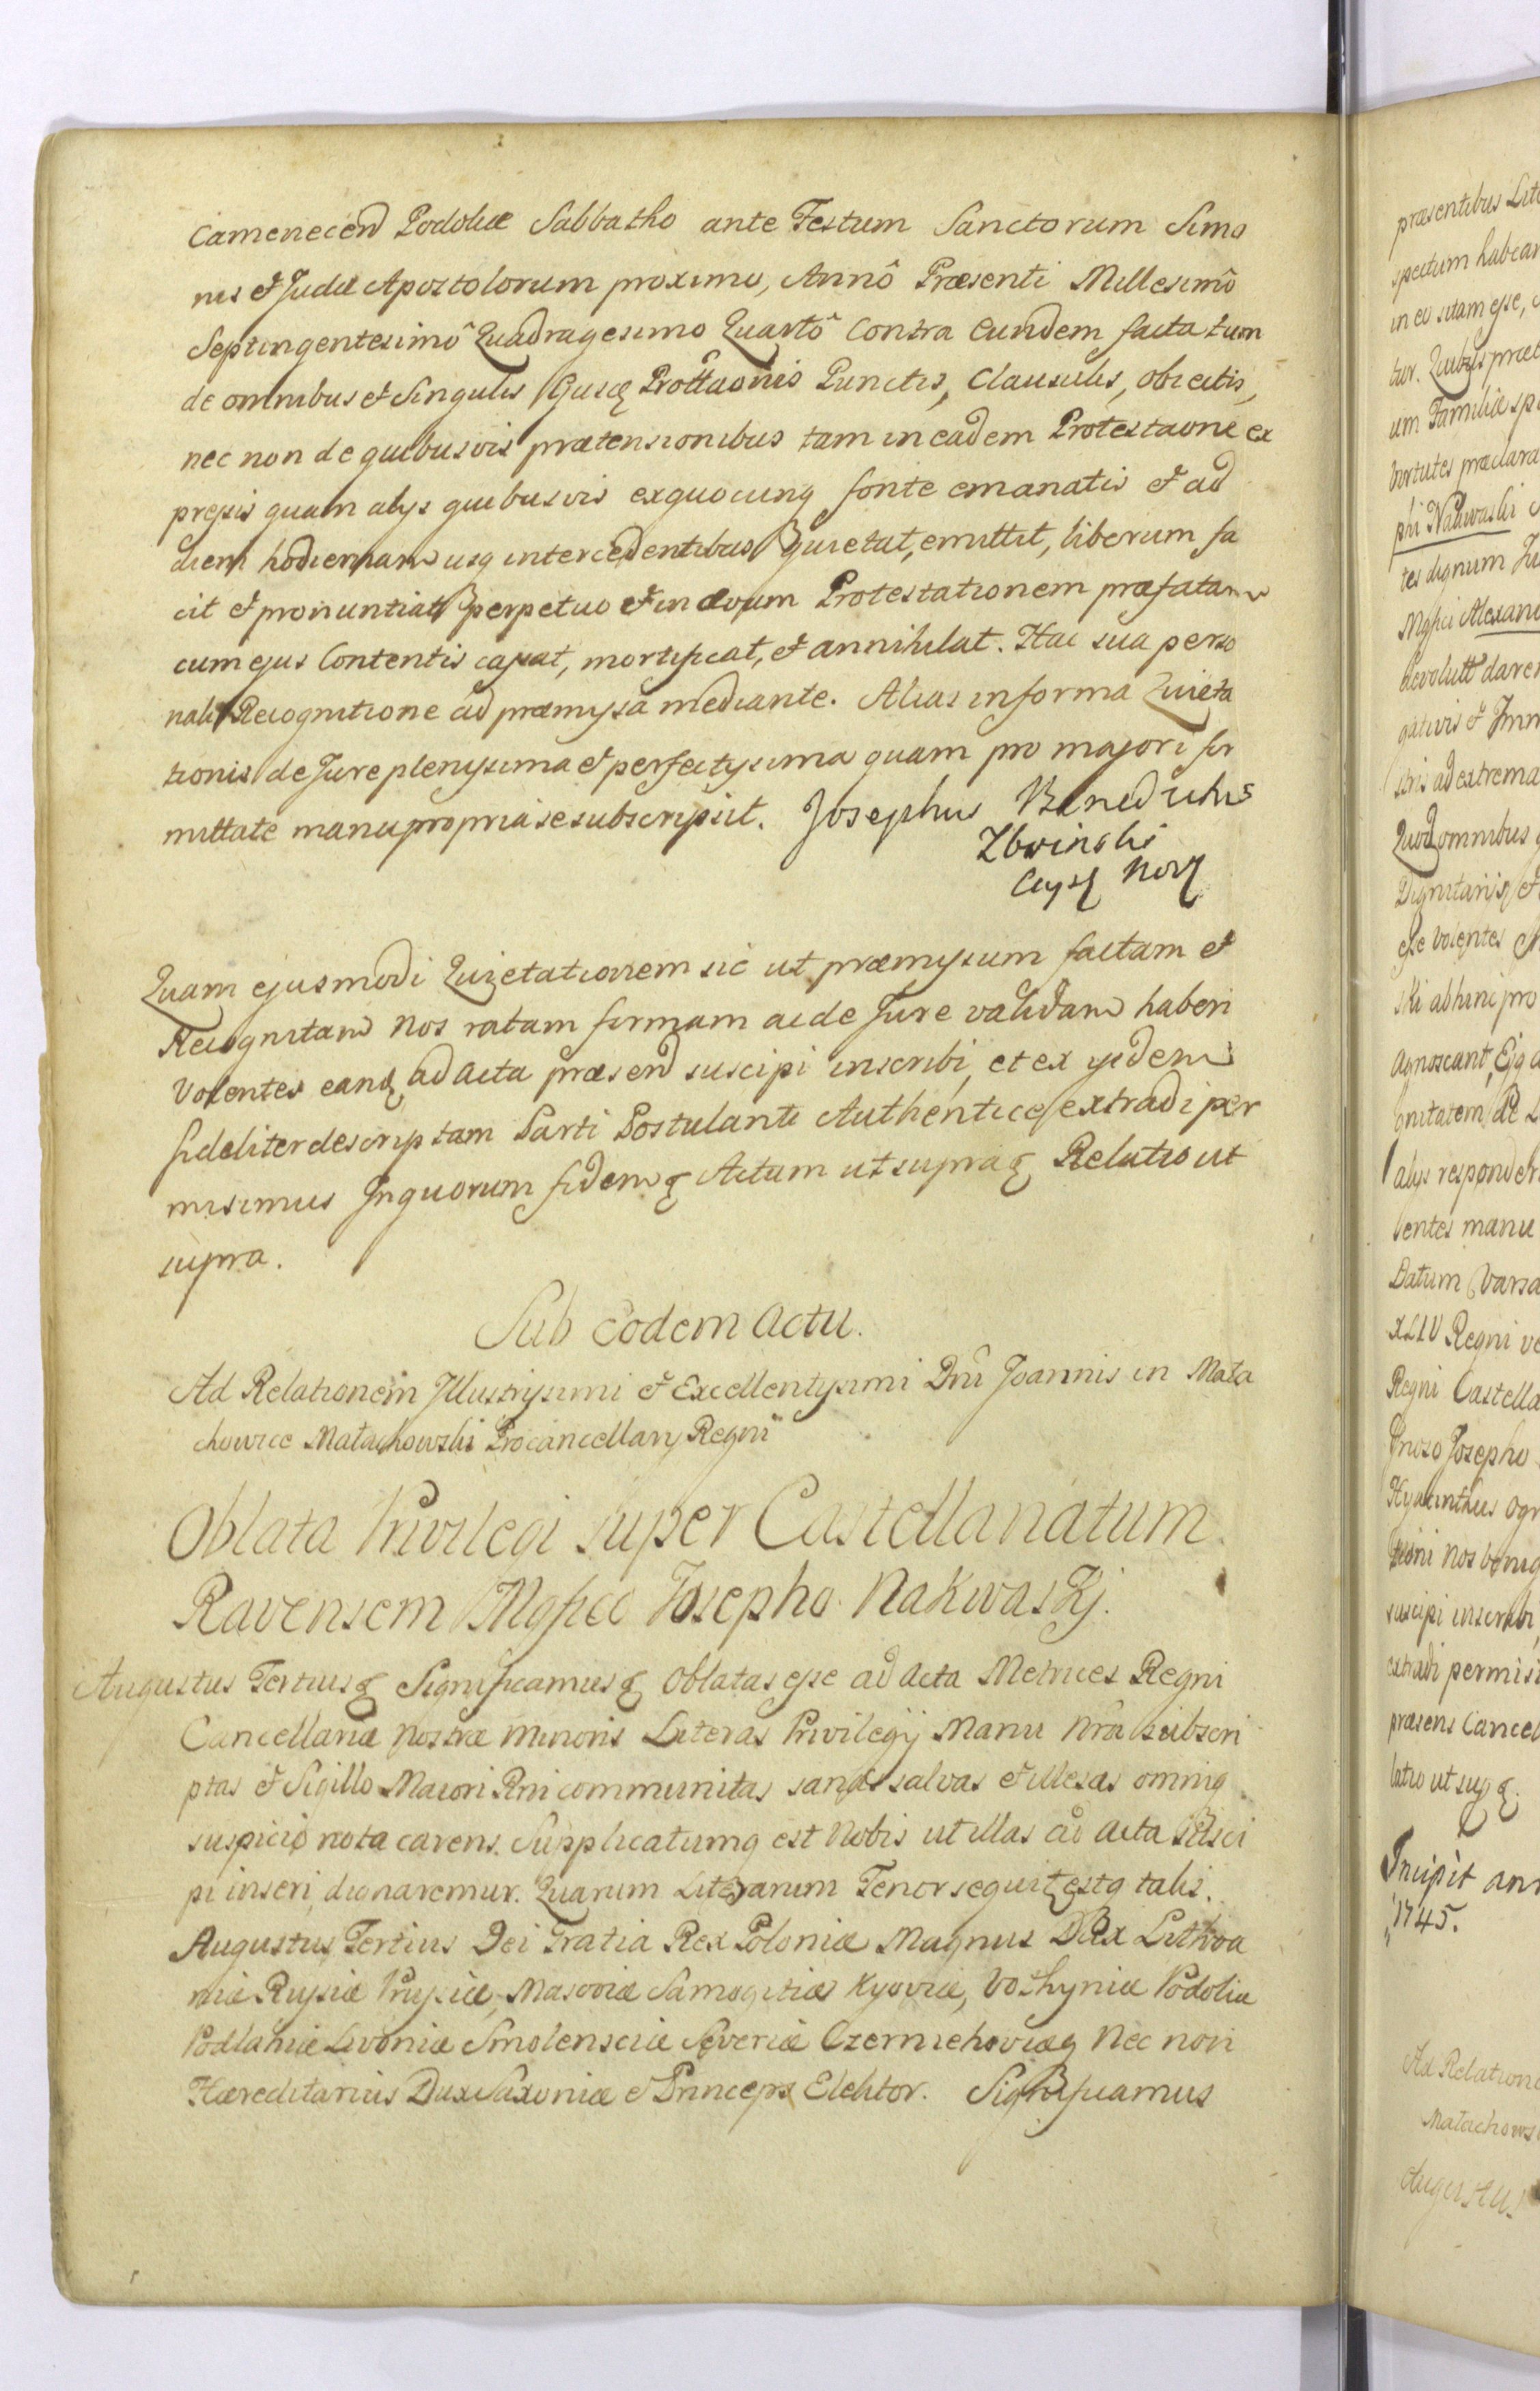 Camenecen Podoliæ Sabbatho ante Festum Sanctorum Simo
nis et Judæ Apostolorum proximo, Annô Præsenti Millesimô
Septingentesimô Quadragesimo Quartô Contra Eundem facta tum
de omnibus et singulis Ejusq Prottaonis Punctis, Clausulis, obiectis,
nec non de quibusvis prætensionibus tam in eadem Protestaone ex
pressis quam alys quibusvis exquocunq fonte emanatis et ad
diem hodiernam usq intercedentibus Quietat, emittit, liberum fa
cit et pronuntiat perpetuo et in ævum Protestationem præfatam
cum ejus Contentis cassat, mortificat, et annihilat. Hac sua perso
nali Recognitione ad præmissa mediante. Alias in forma Quieta
tionis de Jure plenissima et perfectissima quam pro majori fir
mittate manu propria se subscripsit. Josephus Benedictus
Zboinski
Nor
Quam ejusmodi Quietationem sic ut præmissum factam et
Recognitam Nos ratam firmam ac de Jure validam haberi
Volentes eandq ad Acta præsend suscipi inscribi, et ex ijsdem
fideliter descriptam Parti Postulanti Authentice extradi per
misimus Inquorum fidem Actum ut supra Relatio ut
supra.
Sub eodem Actu.
Ad Relationem Jllustrissimi et Excellentyssimi Dni Joannis in Mała
chowice Małachowski Procancellary Regni
Oblata Privilegi super Castellanatum
Ravensem Mgfico Josepho Nakwaskj.
Augustus Tertius Significamus Oblatas esse ad Acta Metrices Regni
Cancellariæ Nostræ Minoris Literas Privilegij Manu Nrâ subscri
ptas et Sigillo Maiori Rni communitas sanas salvas et illesas omniq
suspicio nota carens. Supplicatumq est Nobis ut illas ad Acta susci
pi inseri, dignaremur. Quarum Literarum Tenor sequit estq talis.
Augustus Tertius Dei Gratia Rex Poloniæ Magnus Dux Lithva
niæ Russiæ Prussiæ, Masoviæ Samogitiæ Kyoviæ, Volhyniæ Podoliæ
Podlahiæ Livoniæ Smolensciæ Severiæ Czerniehoviæq Nec non
Hæreditarius Dux Saxoniæ et Princeps Elektor. Significamus
præsentibus
spectum
in eo sitam esse,
um Familiæ
Vortutes præclara
phi Nakwaski
tes dignum
Mgfici
gativis et
ad extrema
Quod omnibus
esse Volentes
ski abhinc pro
Agnoscant,
alys
entes manu
Datum
XLIV Regni
Regni Castella
Josepho
Hyacinthus
Nos
suscipi inscribi
extradi permisi
præsens Cancel
latio ut sup
Incipit
1745.
Ad Relatione
Małachows